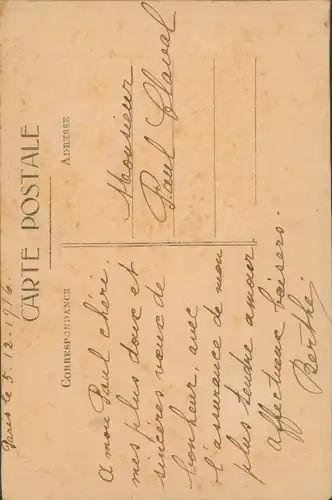 Paris le 5.12.1916.
CARTE POSTALE
CORRESPONDANCE
ADRESSE
A mon Paul chéri.
mes plus doux et
sincères vœux de
bonheur, avec
l'assurance de mon
plus tendre amour.
affectueux baisers.
Berthe
Monsieur
Paul Claval